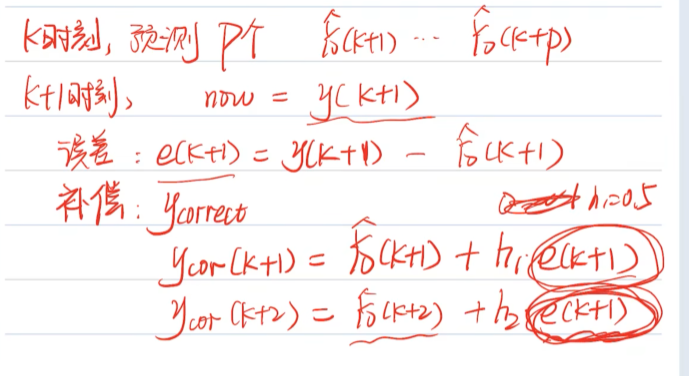 k时刻, 预测 P个 ŷ₀(k+1) ⋯ ŷ₀(k+p)
k+1时刻, now = y(k+1)
误差: e(k+1) = y(k+1) − ŷ₀(k+1)
补偿: ycorrect h₁=0.5
ycor(k+1) = ŷ₀(k+1) + h₁e(k+1)
ycor(k+2) = ŷ₀(k+2) + h₂e(k+1)